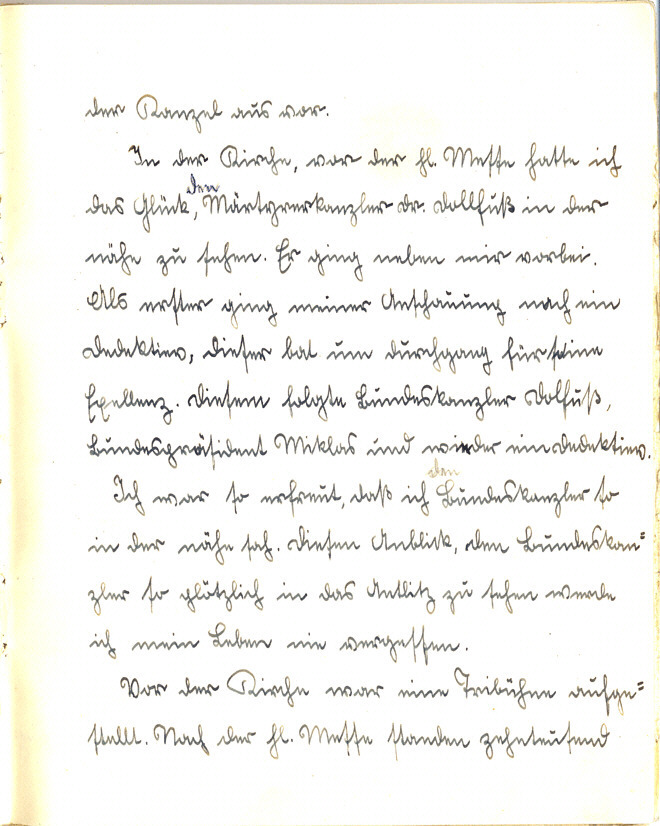 der Kanzel aus vor.
In der Kirche, vor der hl. Messe hatte ich
das Glück, den Märtyrerkanzler Dr. Dollfuß in der
nähe zu sehen. Er ging neben mir vorbei.
Als erster ging meiner Anschauung nach ein
Dedektiev, dieser bat um durchgang für seine
Exellenz. Diesem folgte Bundeskanzler Dolfuß,
Bundespräsident Miklas und wieder ein Dedektiev.
Ich war so erfreut, daß ich den Bundeskanzler so
in der nähe sah. Diesen Anblick, den Bundeskan=
zler so plötzlich in das Antlitz zu sehen werde
ich mein Leben nie vergessen.
Vor der Kirche war eine Tribühne aufge=
stellt. Nach der hl. Messe standen zehnteusend